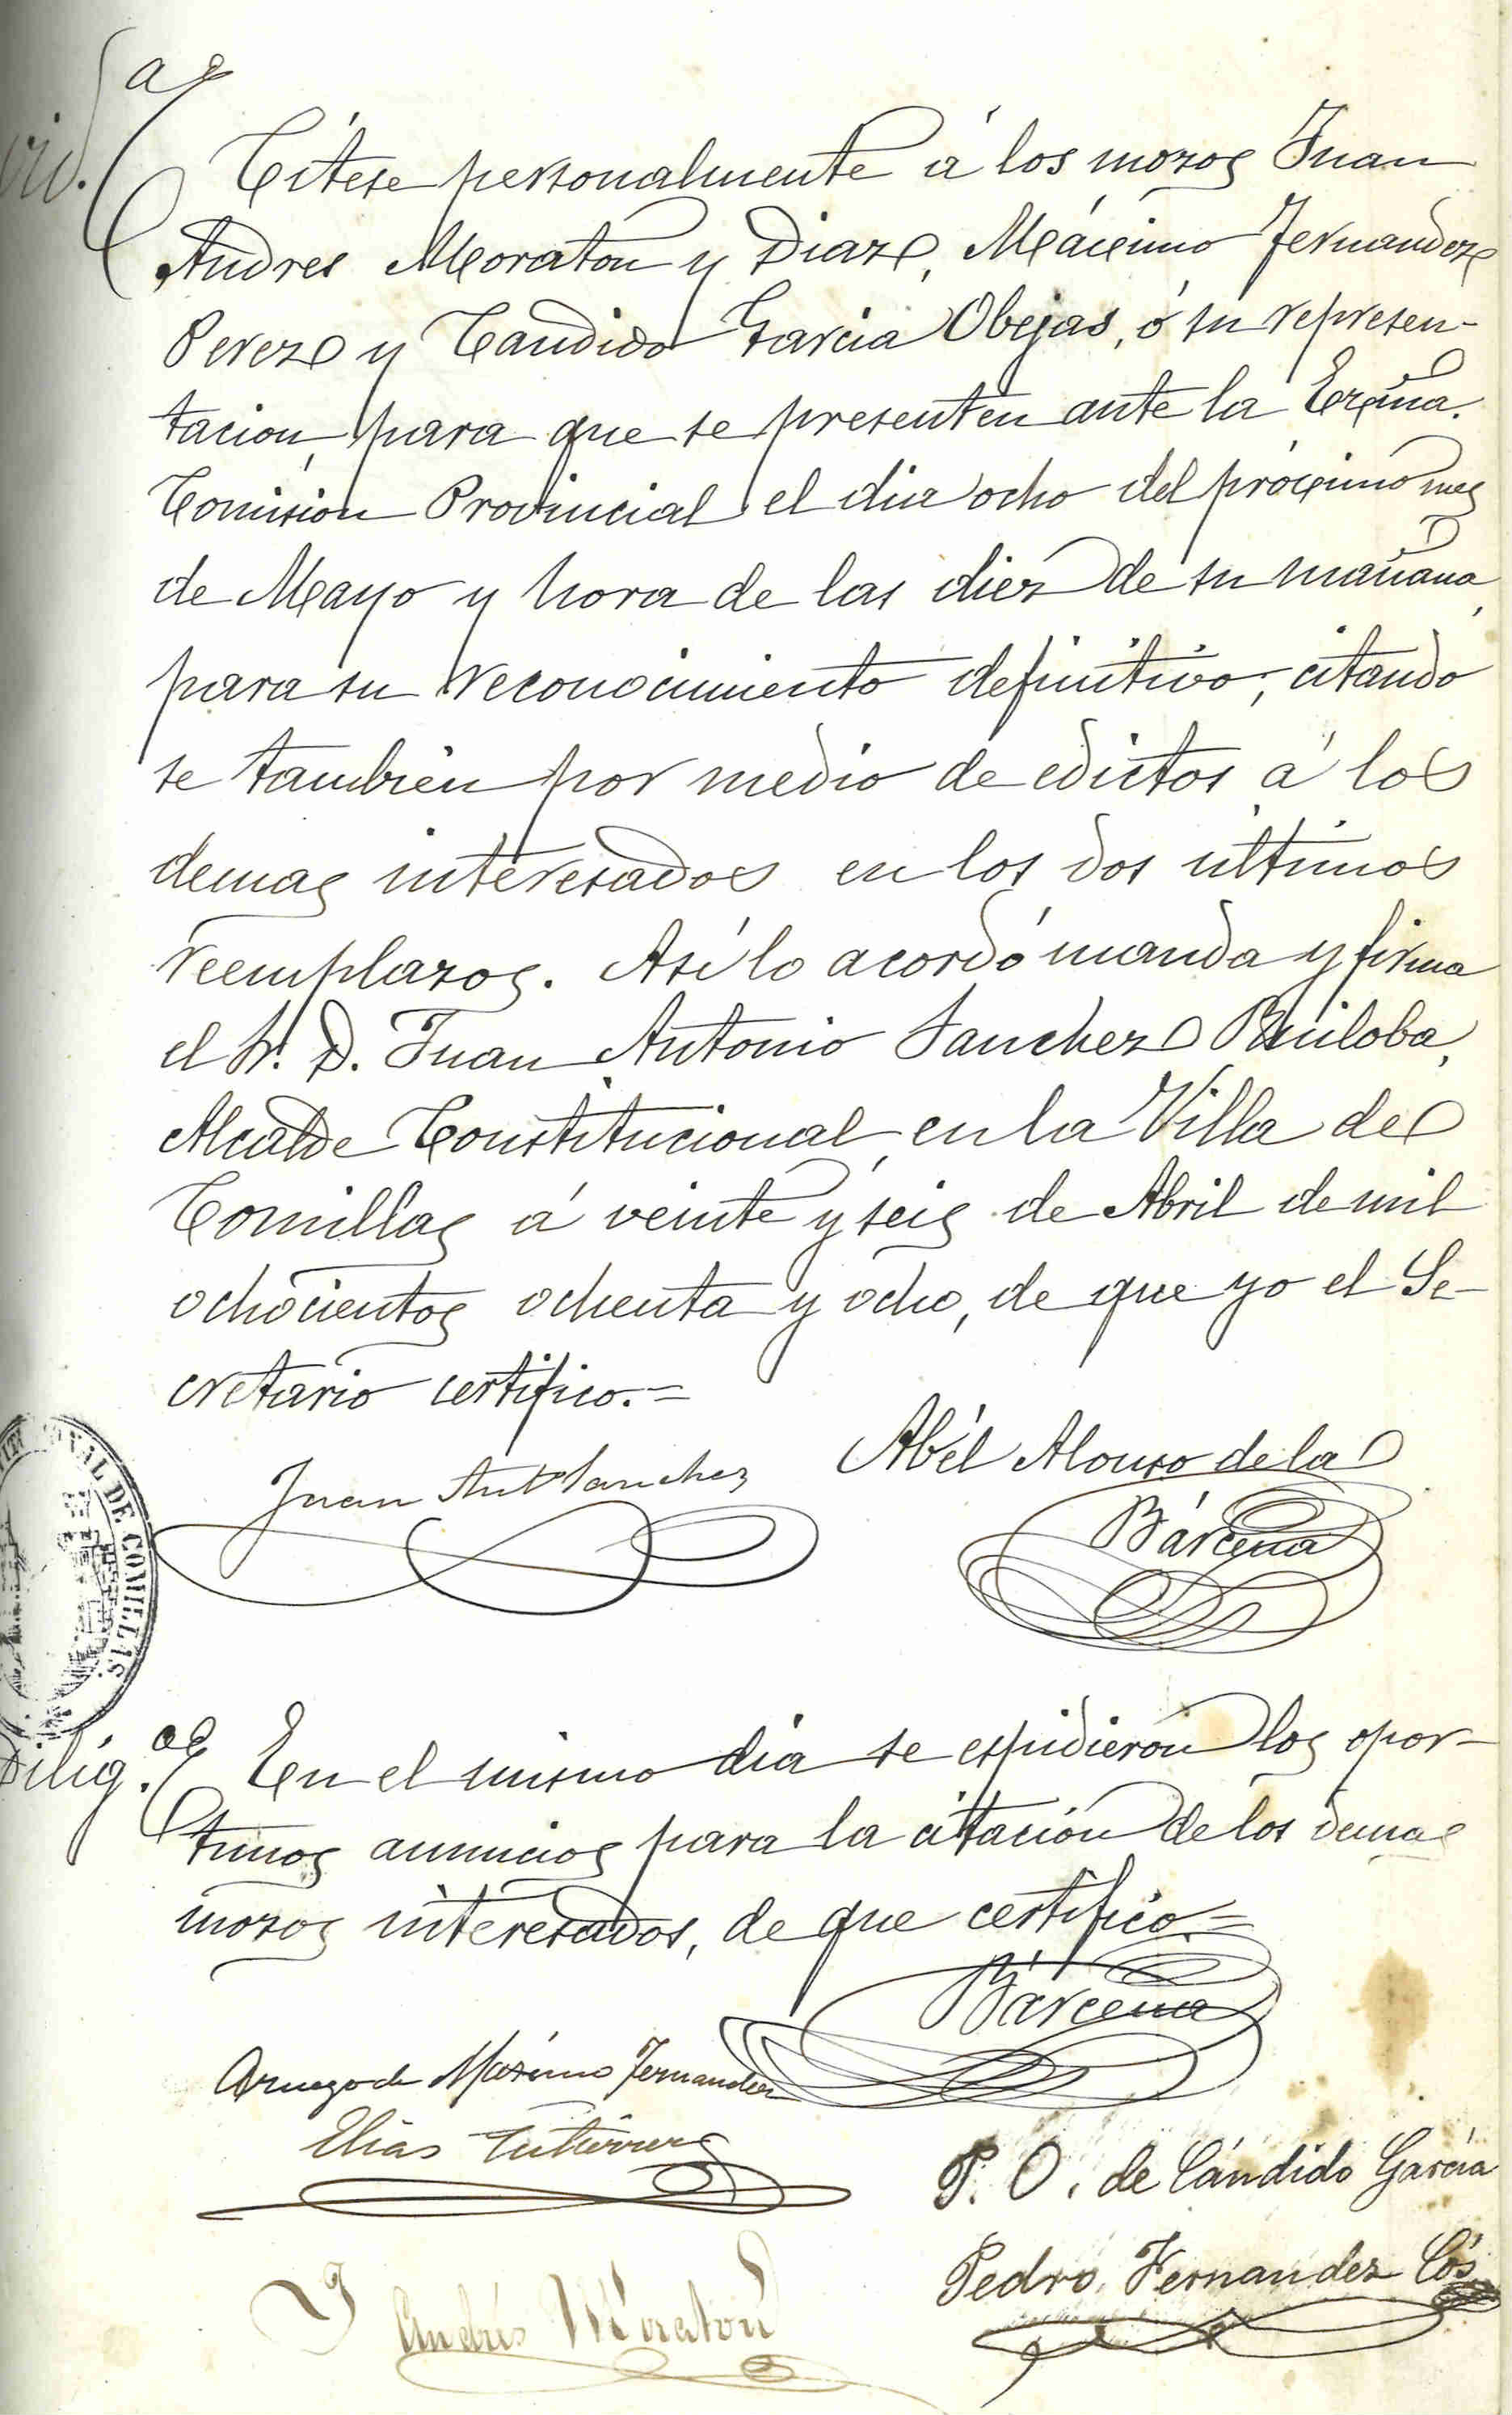 vid.ª
Cítese personalmente á los mozos Juan
Andres Moraton y Diaz, Mácsimo Fernandez
Perez y Candido Garcia Obejas, ó su represen-
tacion, para que se presenten ante la Excma.
Comision Provincial el dia ocho del prócsimo mes
de Mayo y hora de las diez de su mañana,
para su reconocimiento definitivo; citando
se tambien por medio de edictos á los
demas interesados en los dos ultimos
reemplazos. Así lo acordó manda y firma
el Sr. D. Juan Antonio Sanchez Ruiloba,
Alcalde Constitucional, en la Villa de
Comillas á veinte y seis de Abril de mil
ochocientos ochenta y ocho, de que yo el Se-
cretario certifico.=
Juan Antº Sanchez
Abél Alonso de la
Bárcena
NAL DE COMILLAS.
Dilig.ª En el mismo dia se espidieron los opor-
tunos anuncios para la citación de los demas
mozos interesados, de que certifico.=
Bárcena
A ruego de Máximo Fernandez
Elias Gutierrez
P. O. de Cándido García
Pedro Fernandez Cós
J Andrés Moraton